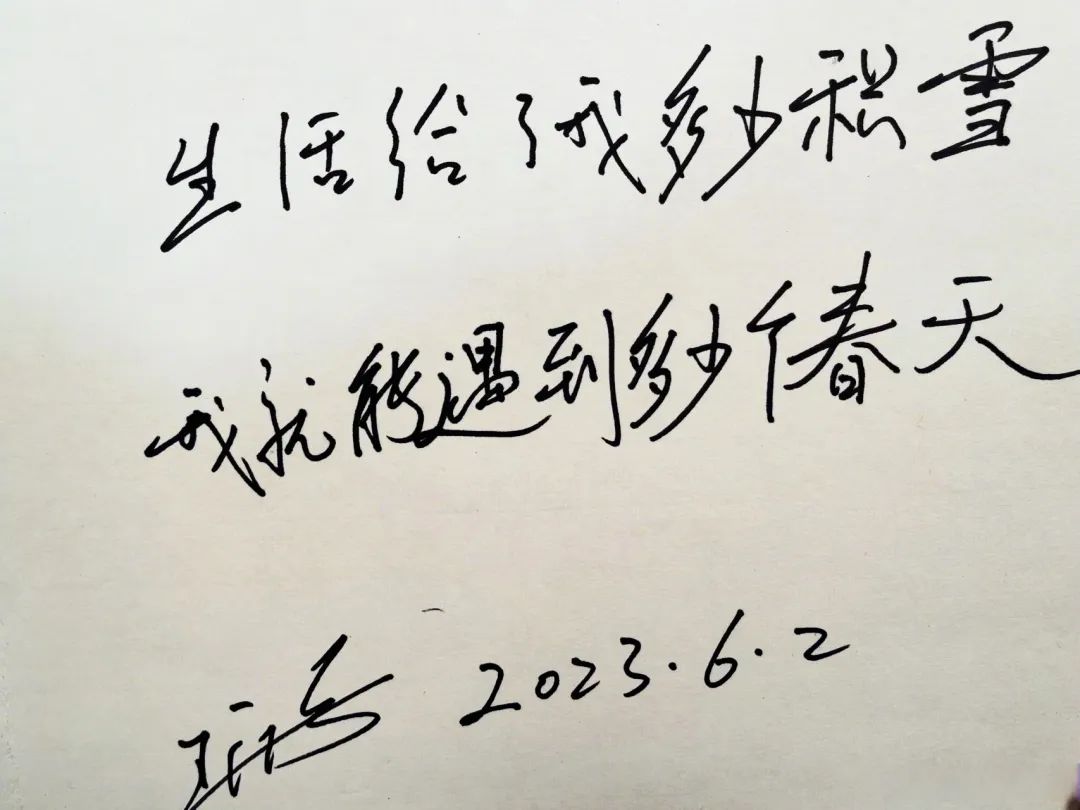 生活给了我多少积雪
我就能遇到多少个春天
2023.6.2